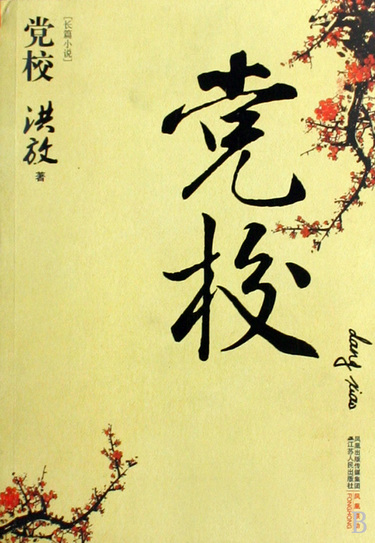 [长篇小说]
党校
洪放
著
党校
dang xiao
凤凰出版传媒集团
江苏人民出版社
凤凰
FONGHONG
B